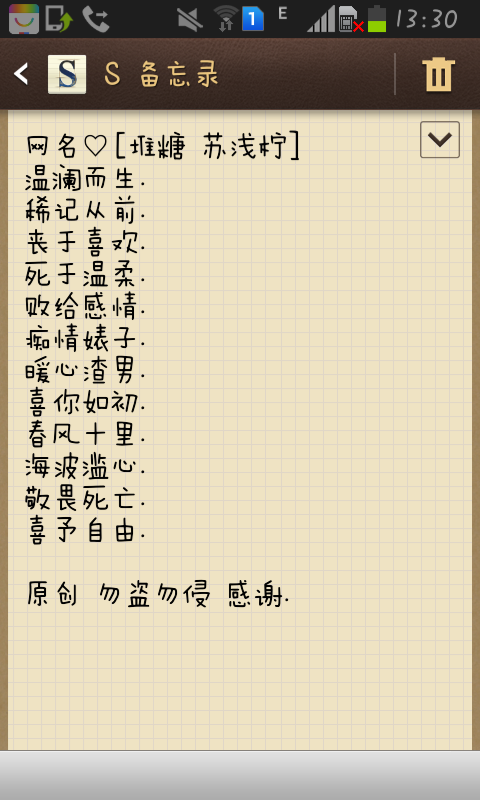 1 E 13:30
S S 备忘录
网名♡[堆糖 苏浅柠]
温澜而生.
稀记从前.
丧于喜欢.
死于温柔.
败给感情.
痴情婊子.
暖心渣男.
喜你如初.
春风十里.
海波滥心.
敬畏死亡.
喜予自由.
原创 勿盗勿侵 感谢.